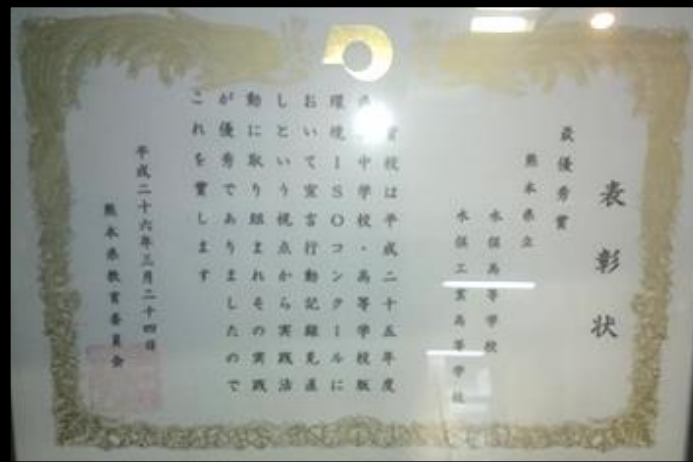 表彰状
最優秀賞
熊本県立
水俣高等学校
水俣工業高等学校
貴校は平成二十五年度
中学校・高等学校版
環境ISOコンクールに
おいて宣言行動記録見直
しという視点から実践活
動に取り組まれその実践
が優秀でありましたので
これを賞します
平成二十六年三月二十四日
熊本県教育委員会